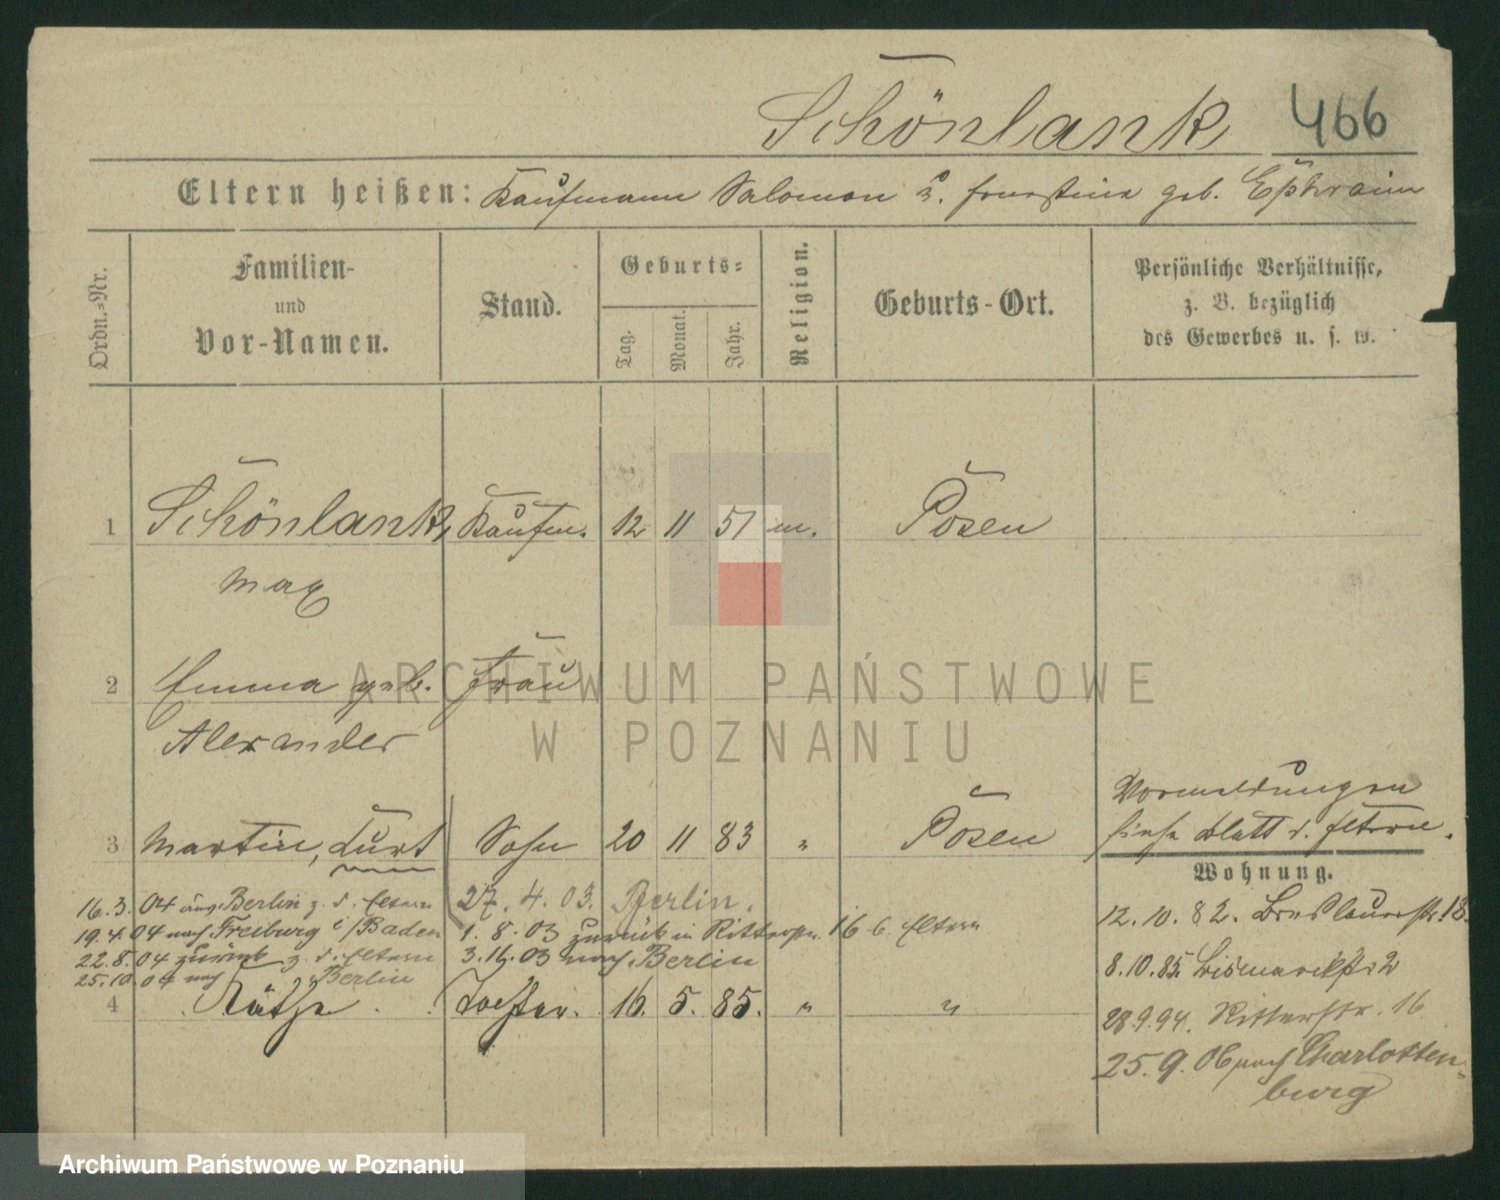 Schönlank 466
Eltern heißen: Kaufmann Salomon u. Ernestine geb. Ephraim
Ordn.-Nr.
Familien- und Vor-Namen.
Stand.
Geburts-
Tag.
Monat.
Jahr.
Religion.
Geburts-Ort.
Persönliche Verhältnisse,
z. B. bezüglich
des Gewerbes u. s. w.
1 Schönlank, Kaufm. 12 11 51 m. Posen
Max
2 Emma geb. Frau
Alexander
Vormeldungen
siehe Blatt d. Eltern.
3 Martin, Curt Sohn 20 11 83 " Posen
Wohnung.
16.3.04 aus Berlin z. d. Eltern 27.4.03. Berlin.
12.10.82. Breslauerstr. 18.
19.4.04 nach Freiburg i/Baden 1.8.03 zurück in Ritterstr. 16 b. Eltern
22.8.04 zurück z. d. Eltern 3.16.03 nach Berlin
8.10.85. Bismarckstr 2
25.10.04 nach Berlin
4 Käthe Tochter. 16. 5. 85. " "
28.9.94. Ritterstr. 16
25.9.06 nach Charlotten-
burg
ARCHIWUM PAŃSTWOWE
W POZNANIU
Archiwum Państwowe w Poznaniu